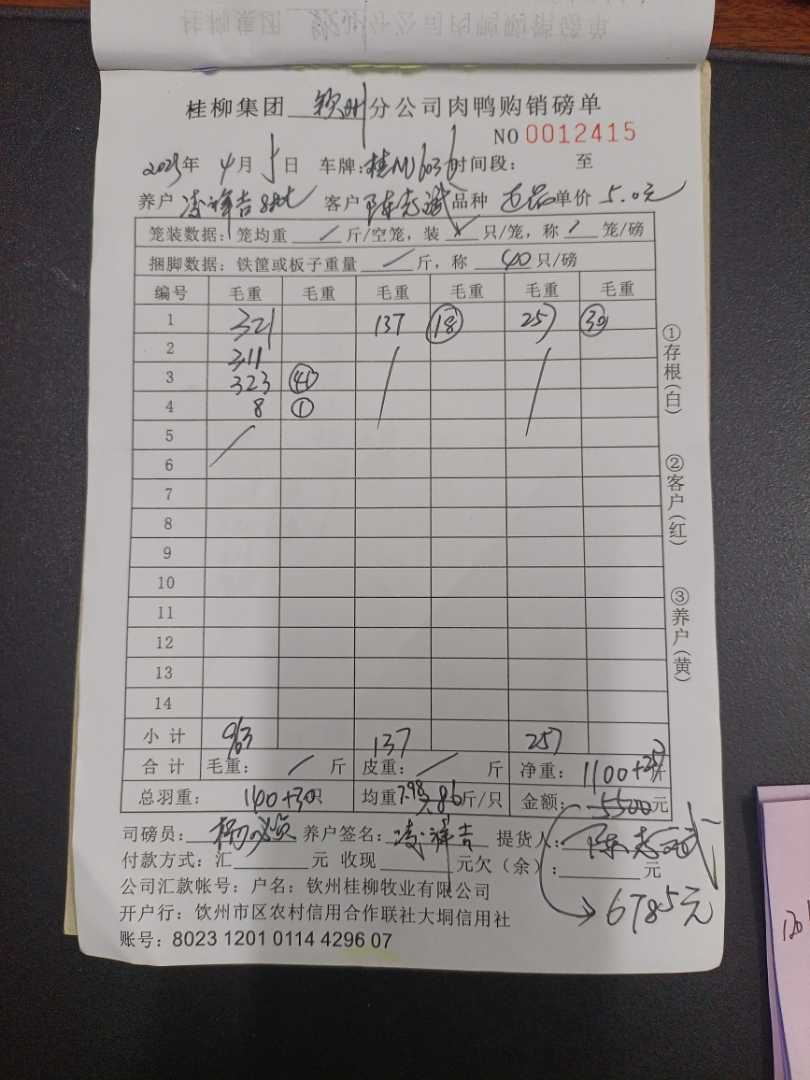 桂柳集团 钦州 分公司肉鸭购销磅单
NO 0012415
2025年 4月 5日 车牌: 时间段: 至
养户 凌祥吉 客户 陈志斌 品种 单价 5.0元
笼装数据: 笼均重 / 斤/空笼, 装 / 只/笼, 称 / 笼/磅
捆脚数据: 铁筐或板子重量 / 斤, 称 40 只/磅
编号 毛重 毛重 毛重 毛重 毛重 毛重
1 321 137 18 257 30
2 311
3 323 41
4 8 1
5
6
7
8
9
10
11
12
13
14
小计 963 137 257
合计 毛重: / 斤 皮重: / 斤 净重: 1100+257斤
总羽重: 140+30只 均重 7.98 8.6斤/只 金额: 5500元
司磅员: 养户签名: 凌祥吉 提货人: 陈志斌
付款方式: 汇 元 收现 元欠(余): 元
6785元
公司汇款帐号: 户名: 钦州桂柳牧业有限公司
开户行: 饮州市区农村信用合作联社大垌信用社
账号: 8023 1201 0114 4296 07
①存根(白)
②客户(红)
③养户(黄)